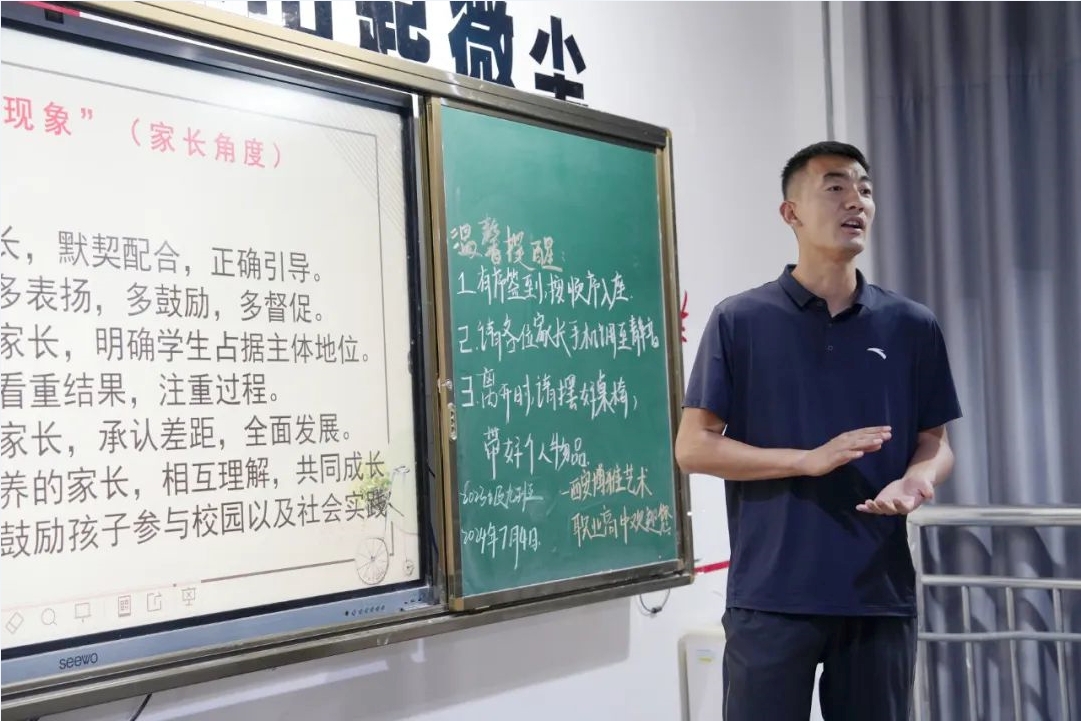 微尘
现象”（家长角度）
长，默契配合，正确引导。
多表扬，多鼓励，多督促。
家长，明确学生占据主体地位。
看重结果，注重过程。
家长，承认差距，全面发展。
养的家长，相互理解，共同成长
鼓励孩子参与校园以及社会实践
seewo
温馨提醒：
1.有序签到，按顺序入座.
2.请各位家长手机调至静音
3.离开时，请摆好桌椅，
带好个人物品.
—西安博雅艺术
职业高中欢迎您
2024年7月4日.